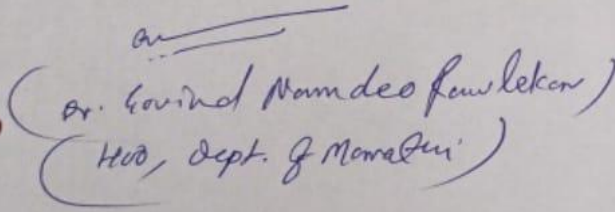 (Dr. Govind Namdeo Rawlekar)
(HOD, Dept. of Marathi)